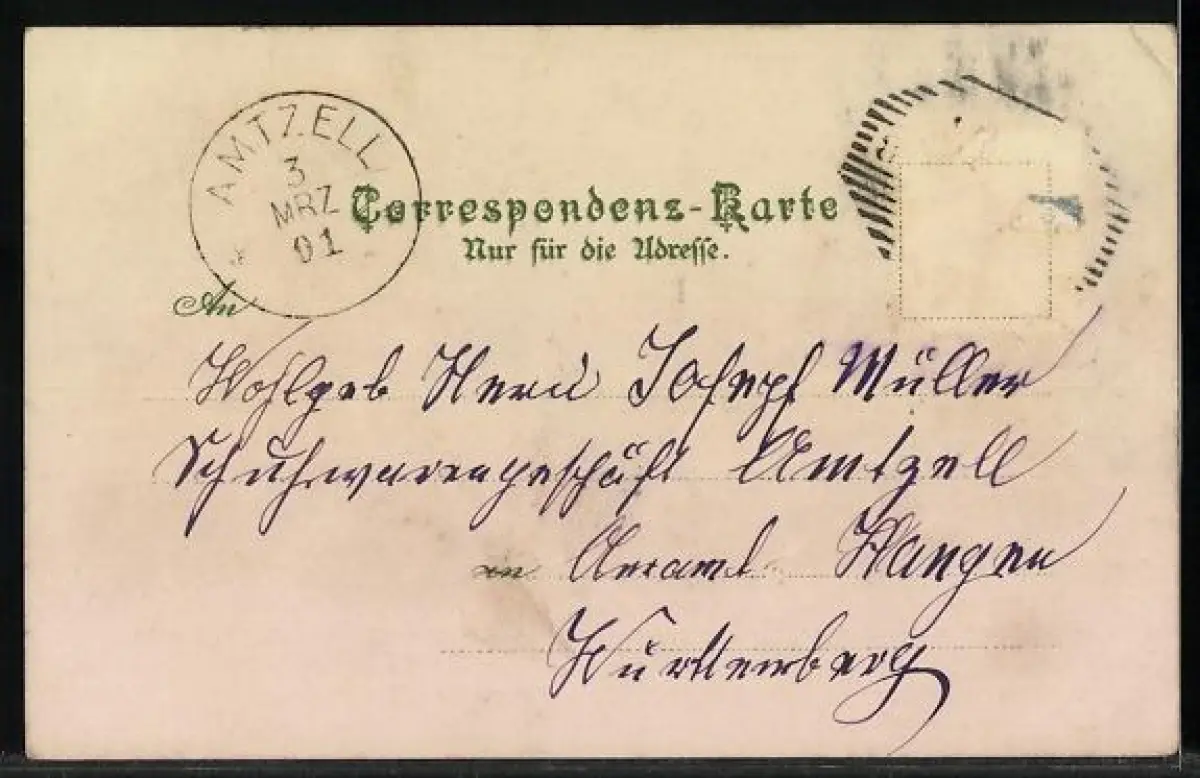 AMTZELL
3
MRZ
01
Correspondenz-Karte
Nur für die Adresse.
An
Wohlgeb Herrn Josepf Müller
Schuhwarengeschäft Amtzell
in Oberamt Wangen
Württemberg